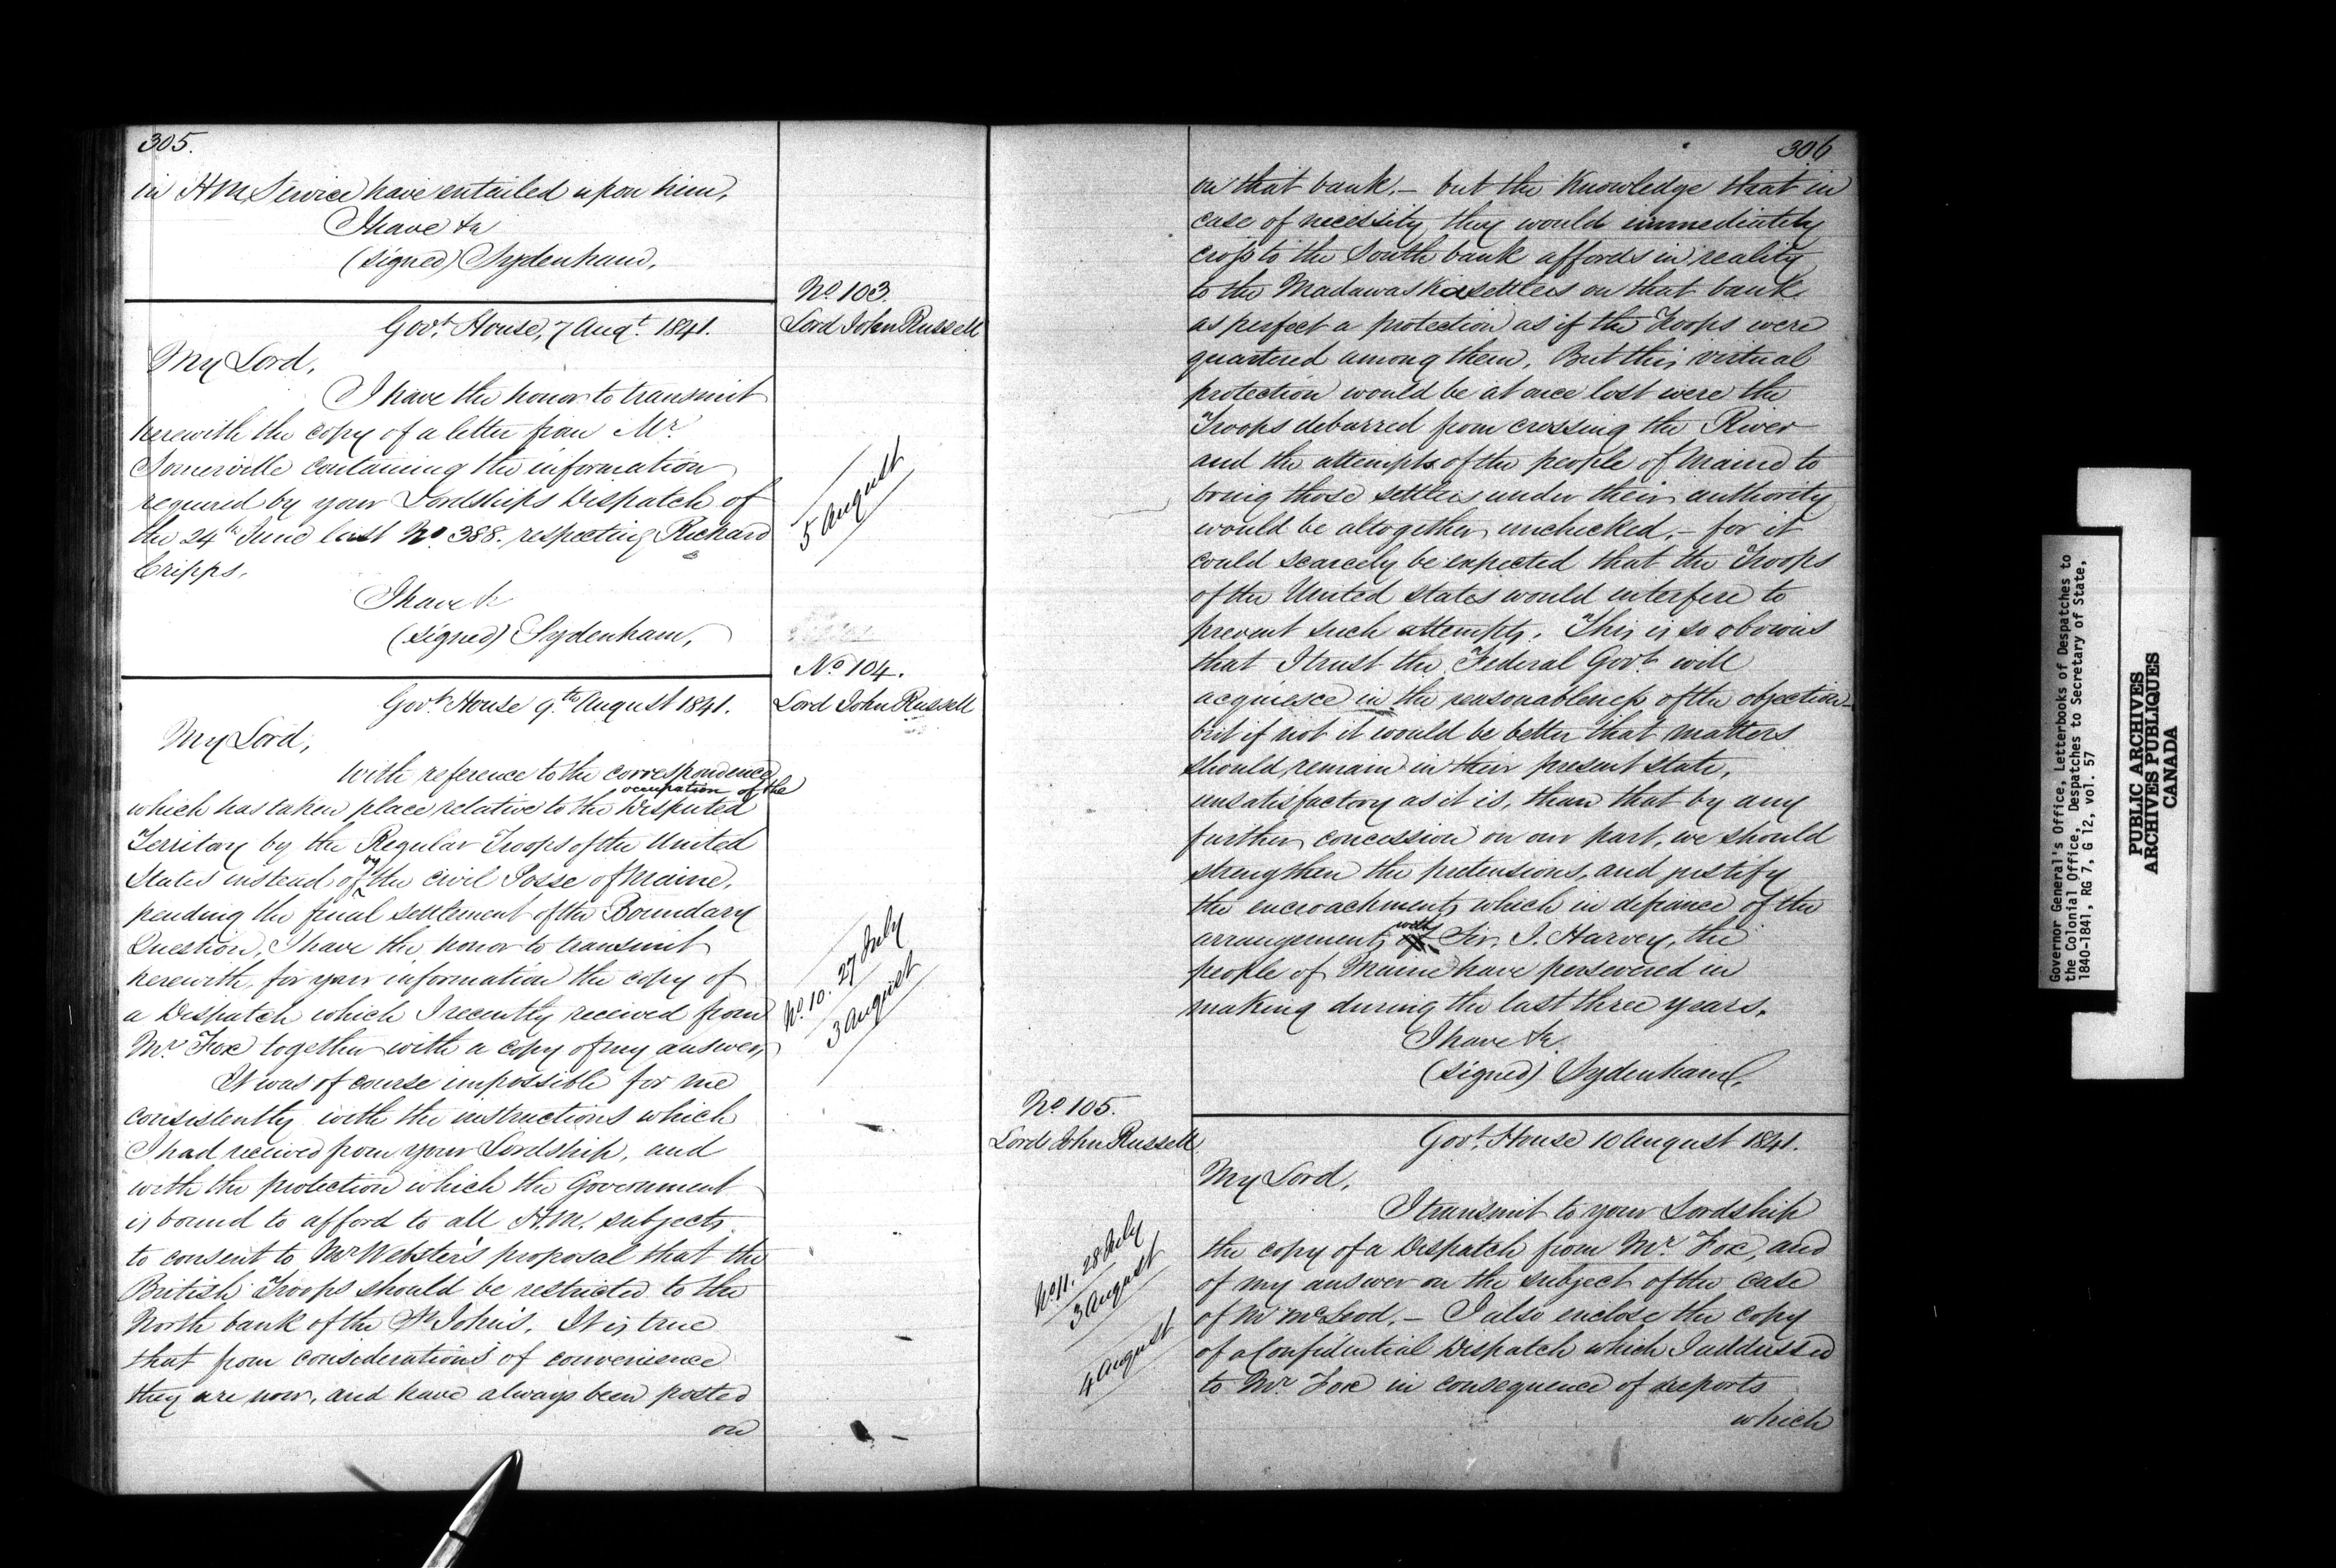 305.
in H M Service have entailed upon him,
I have &c
(signed) Sydenham,
No 103.
Lord John Russell
Govt. House, 7 Augt. 1841.
My Lord,
I have the honor to transmit
herewith the copy of a letter from Mr.
Somerville containing the information
required by your Lordships Dispatch of
the 24th June last No. 388. respecting Richard
Cripps.
5 August
I have &c
(signed) Sydenham,
No 104.
Lord John Russell
Govt. House 9th. August 1841.
My Lord,
With reference to the correspondence
which has taken place relative to the occupation of the Disputed
Territory by the Regular Troops of the United
States instead of by the civil Posse of Maine,
pending the final settlement of the Boundary
Question, I have the honor to transmit
herewith, for your information the copy of
a Dispatch which I recently received from
Mr Fox together with a copy of my answer,
No. 10. 27 July
3 August
It was of course impossible for me
consistently with the instructions which
I had received from your Lordship, and
with the protection which the Government
is bound to afford to all H.M. subjects
to consent to Mr Webster's proposal that the
British Troops should be restricted to the
North bank of the St John's. It is true
that from considerations of convenience
they are now, and have always been posted
on
306
on that bank. – but the knowledge that in
case of necessity they would immediately
cross to the South bank affords in reality
to the Madawaska settlers on that bank
as perfect a protection as if the Troops were
quartered among them. But this virtual
protection would be at once lost were the
Troops debarred from crossing the River
and the attempts of the people of Maine to
bring those settlers under their authority
would be altogether unchecked, – for it
could scarcely be expected that the Troops
of the United States would interfere to
prevent such attempts. This is so obvious
that I trust the Federal Govt will
acquiesce in the reasonableness of the objection –
but if not it would be better that matters
should remain in their present state,
unsatisfactory as it is, than that by any
further concession on our part, we should
strengthen the pretensions, and justify
the encroachments which in defiance of the
arrangements with Sir J. Harvey, the
people of Maine have persevered in
making during the last three years.
I have &c
(signed) Sydenham.
No. 105.
Lord John Russell
Govt. House 10 August 1841.
My Lord,
I transmit to your Lordship
the copy of a Dispatch from Mr. Fox, and
of my answer on the subject of the case
of Mr McLeod. – I also enclose the copy
of a Confidential Dispatch which I addressed
to Mr. Fox in consequence of reports
which
No 11. 28 July
3 August
4 August
Governor General's Office, Letterbooks of Despatches to
the Colonial Office, Despatches to Secretary of State,
1840-1841, RG 7, G 12, vol. 57
PUBLIC ARCHIVES
ARCHIVES PUBLIQUES
CANADA